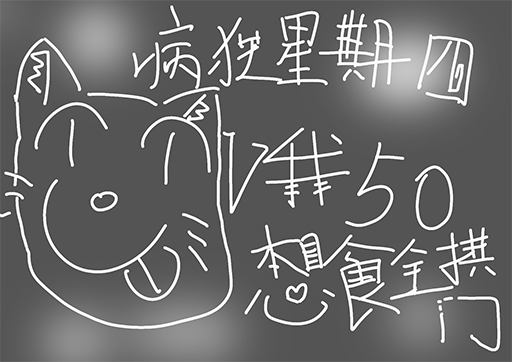 病狂星期四
V我50
想食全拱
门